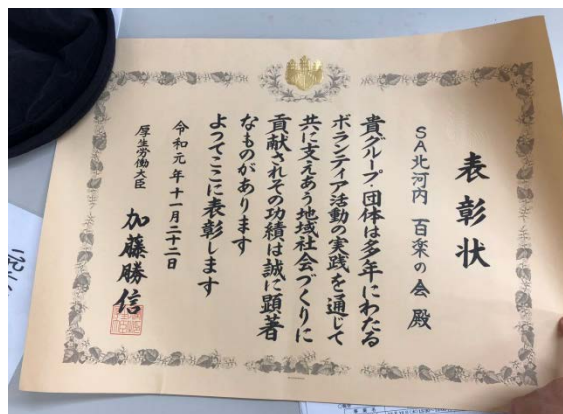 表彰状
SA北河内 百楽の会 殿
貴グループ・団体は多年にわたる
ボランティア活動の実践を通じて
共に支えあう地域社会づくりに
貢献されその功績は誠に顕著
なものがあります
よってここに表彰します
令和元年十一月二十二日
厚生労働大臣 加藤勝信